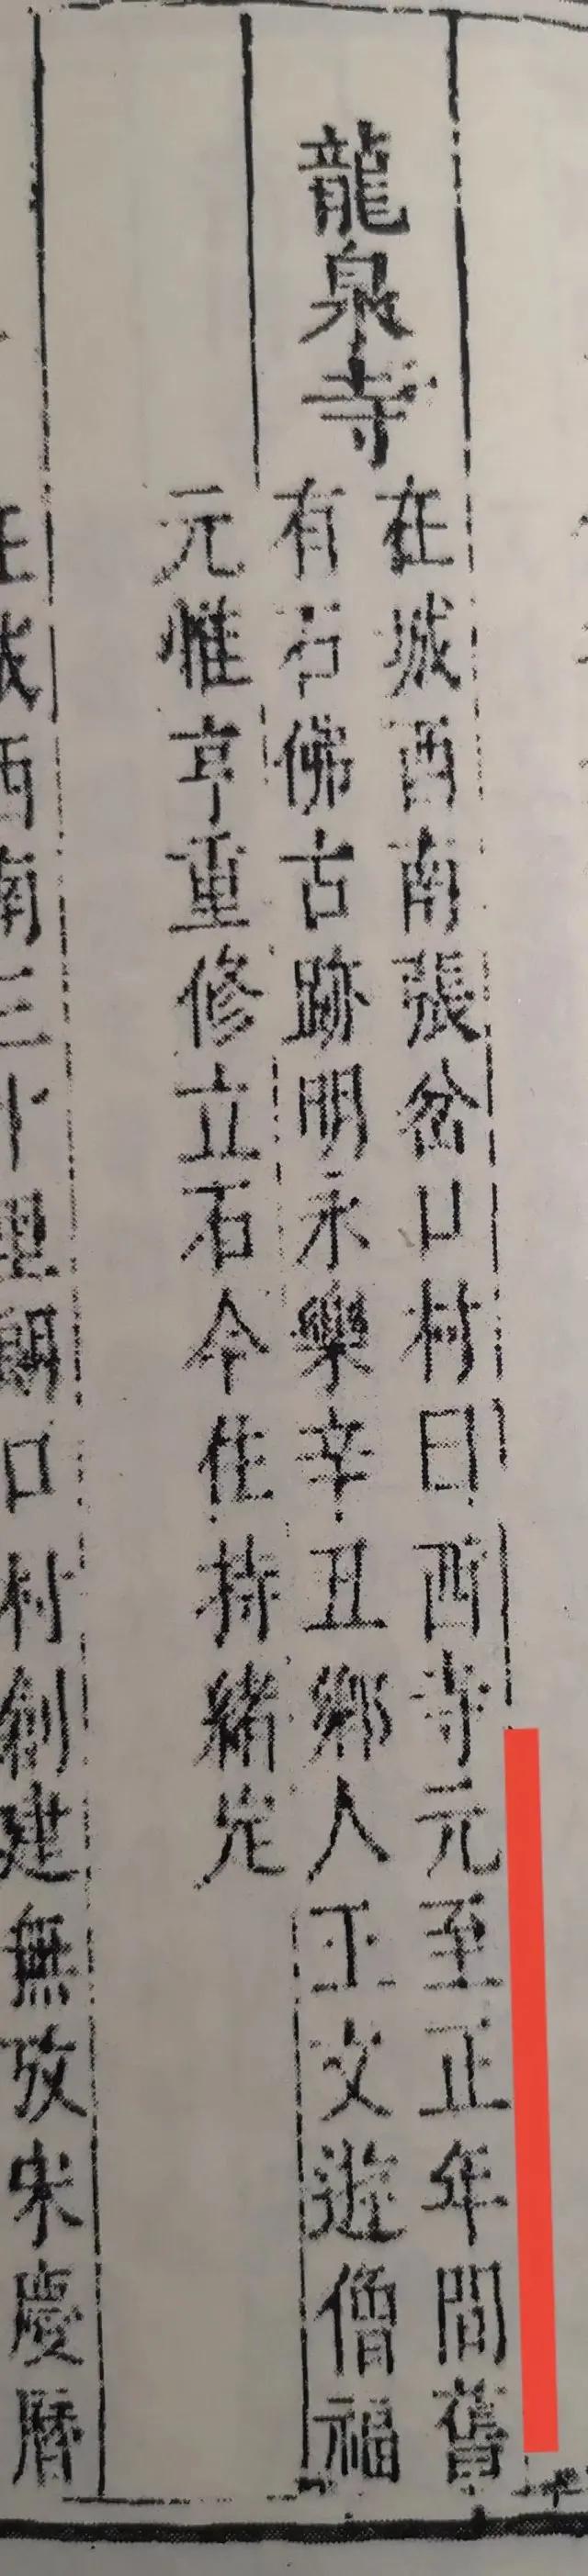 龍泉寺
在城西南張岔口村曰西寺元至正年間舊
有石佛古跡明永樂辛丑鄉人王文遊僧福
元惟亨重修立石今住持緒定
在城西南三十里口村創建無攷宋慶曆